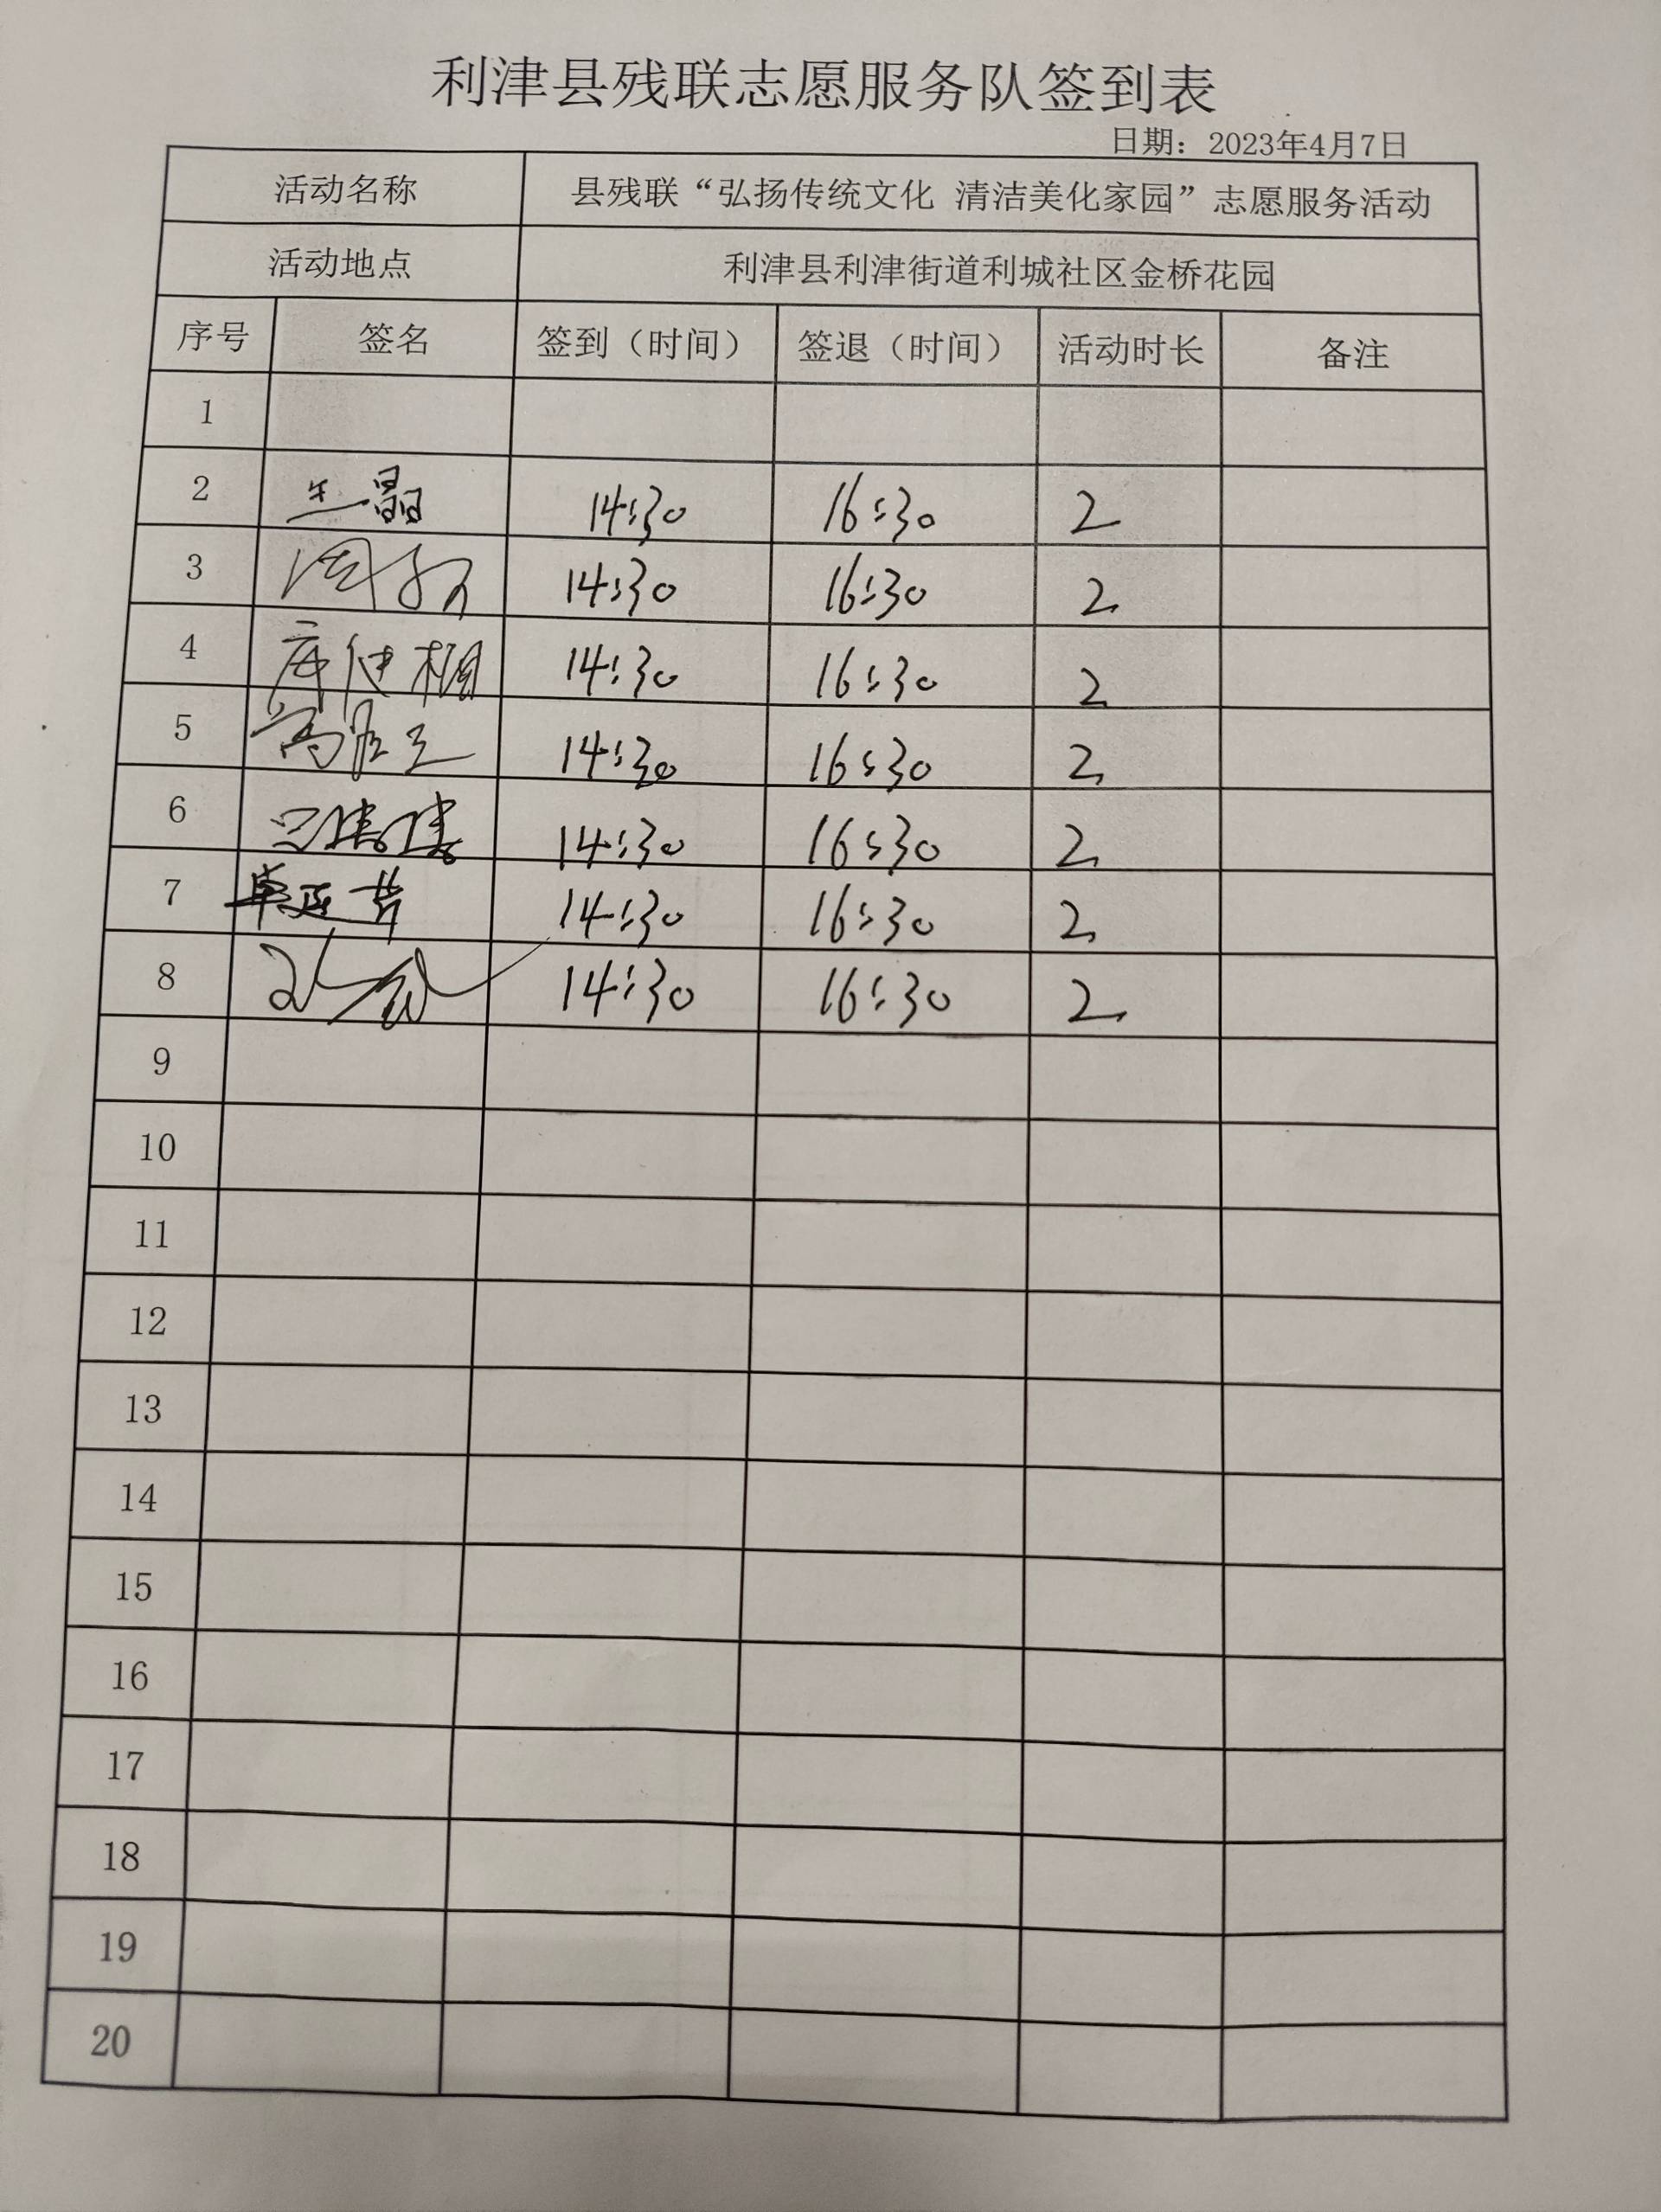 利津县残联志愿服务队签到表
日期：2023年4月7日
活动名称 县残联“弘扬传统文化 清洁美化家园”志愿服务活动
活动地点 利津县利津街道利城社区金桥花园
序号 签名 签到（时间） 签退（时间） 活动时长 备注
1
2 14:30 16:30 2
3 14:30 16:30 2
4 14:30 16:30 2
5 14:30 16:30 2
6 14:30 16:30 2
7 14:30 16:30 2
8 14:30 16:30 2
9
10
11
12
13
14
15
16
17
18
19
20